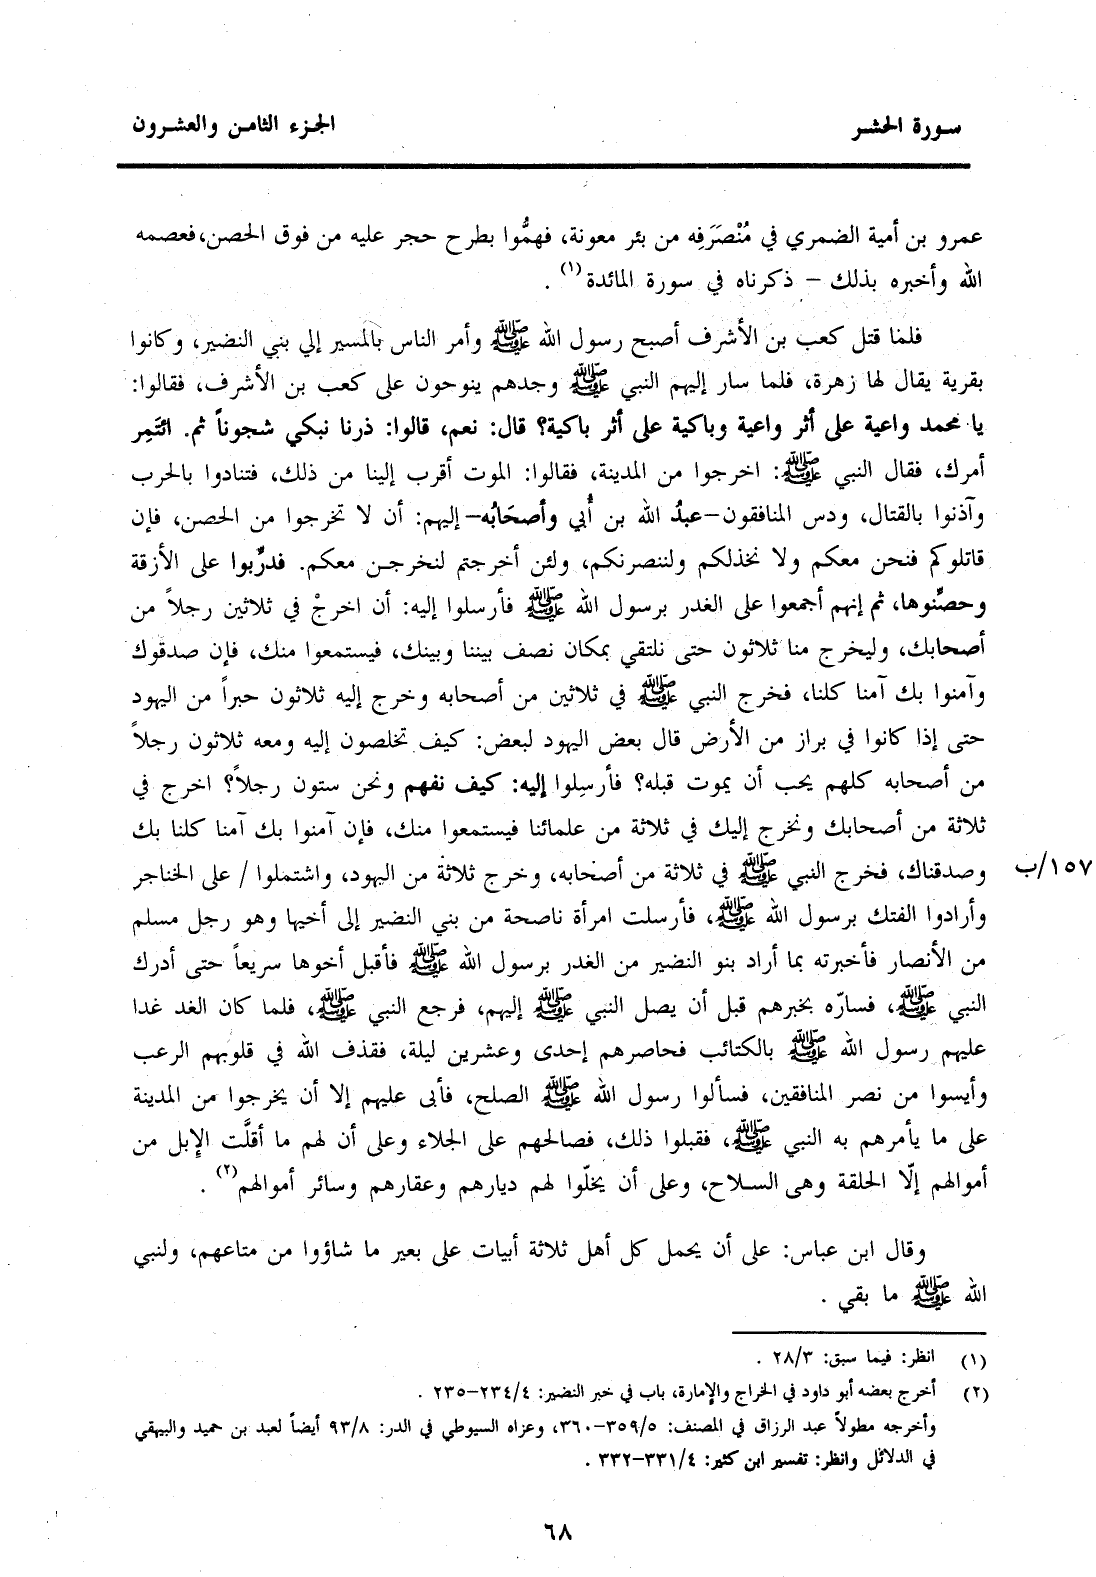 سورة الحشر
الجزء الثامن والعشرون
عمرو بن أمية الضمري في مُنْصَرَفِه من بئر معونة، فهمُّوا بطرح حجر عليه من فوق الحصن، فعصمه
الله وأخبره بذلك – ذكرناه في سورة المائدة(١) .
فلما قتل كعب بن الأشرف أصبح رسول الله ﷺ وأمر الناس بالمسير إلي بني النضير، وكانوا
بقرية يقال لها زهرة، فلما سار إليهم النبي ﷺ وجدهم ينوحون على كعب بن الأشرف، فقالوا:
يا محمد واعية على أثر واعية وباكية على أثر باكية؟ قال: نعم، قالوا: ذرنا نبكي شجوناً ثم. ائتَمِر
أمرك، فقال النبي ﷺ: اخرجوا من المدينة، فقالوا: الموت أقرب إلينا من ذلك، فتنادوا بالحرب
وآذنوا بالقتال، ودس المنافقون–عبدُ الله بن أُبي وأصحَابُه–إليهم: أن لا تخرجوا من الحصن، فإن
قاتلوكم فنحن معكم ولا نخذلكم ولننصرنكم، ولئن أخرجتم لنخرجن معكم. فدرِّبوا على الأزقة
وحصِّنوها، ثم إنهم أجمعوا على الغدر برسول الله ﷺ فأرسلوا إليه: أن اخرجْ في ثلاثين رجلاً من
أصحابك، وليخرج منا ثلاثون حتى نلتقي بمكان نصف بيننا وبينك، فيستمعوا منك، فإن صدقوك
وآمنوا بك آمنا كلنا، فخرج النبي ﷺ في ثلاثين من أصحابه وخرج إليه ثلاثون حبراً من اليهود
حتى إذا كانوا في براز من الأرض قال بعض اليهود لبعض: كيف تخلصون إليه ومعه ثلاثون رجلاً
من أصحابه كلهم يحب أن يموت قبله؟ فأرسِلوا إليه: كيف نفهم ونحن ستون رجلاً؟ اخرج في
ثلاثة من أصحابك ونخرج إليك في ثلاثة من علمائنا فيستمعوا منك، فإن آمنوا بك آمنا كلنا بك
وصدقناك، فخرج النبي ﷺ في ثلاثة من أصحابه، وخرج ثلاثة من اليهود، واشتملوا / على الخناجر
١٥٧/ب
وأرادوا الفتك برسول الله ﷺ، فأرسلت امرأة ناصحة من بني النضير إلى أخيها وهو رجل مسلم
من الأنصار فأخبرته بما أراد بنو النضير من الغدر برسول الله ﷺ فأقبل أخوها سريعاً حتى أدرك
النبي ﷺ، فسارّه بخبرهم قبل أن يصل النبي ﷺ إليهم، فرجع النبي ﷺ، فلما كان الغد غدا
عليهم رسول الله ﷺ بالكتائب فحاصرهم إحدى وعشرين ليلة، فقذف الله في قلوبهم الرعب
وأيسوا من نصر المنافقين، فسألوا رسول الله ﷺ الصلح، فأبى عليهم إلا أن يخرجوا من المدينة
على ما يأمرهم به النبي ﷺ، فقبلوا ذلك، فصالحهم على الجلاء وعلى أن لهم ما أقلَّت الإبل من
أموالهم إلّا الحلقة وهى السلاح، وعلى أن يخلّوا لهم ديارهم وعقارهم وسائر أموالهم(٢) .
وقال ابن عباس: على أن يحمل كل أهل ثلاثة أبيات على بعير ما شاؤوا من متاعهم، ولنبي
الله ﷺ ما بقي .
(١) انظر: فيما سبق: ٢٨/٣ .
(٢) أخرج بعضه أبو داود في الخراج والإمارة، باب في خبر النضير: ٢٣٤/٤–٢٣٥ .
وأخرجه مطولاً عبد الرزاق في المصنف: ٣٥٩/٥–٣٦٠، وعزاه السيوطي في الدر: ٩٣/٨ أيضاً لعبد بن حميد والبيهقي
في الدلائل وانظر: تفسير ابن كثير: ٣٣١/٤–٣٣٢ .
٦٨